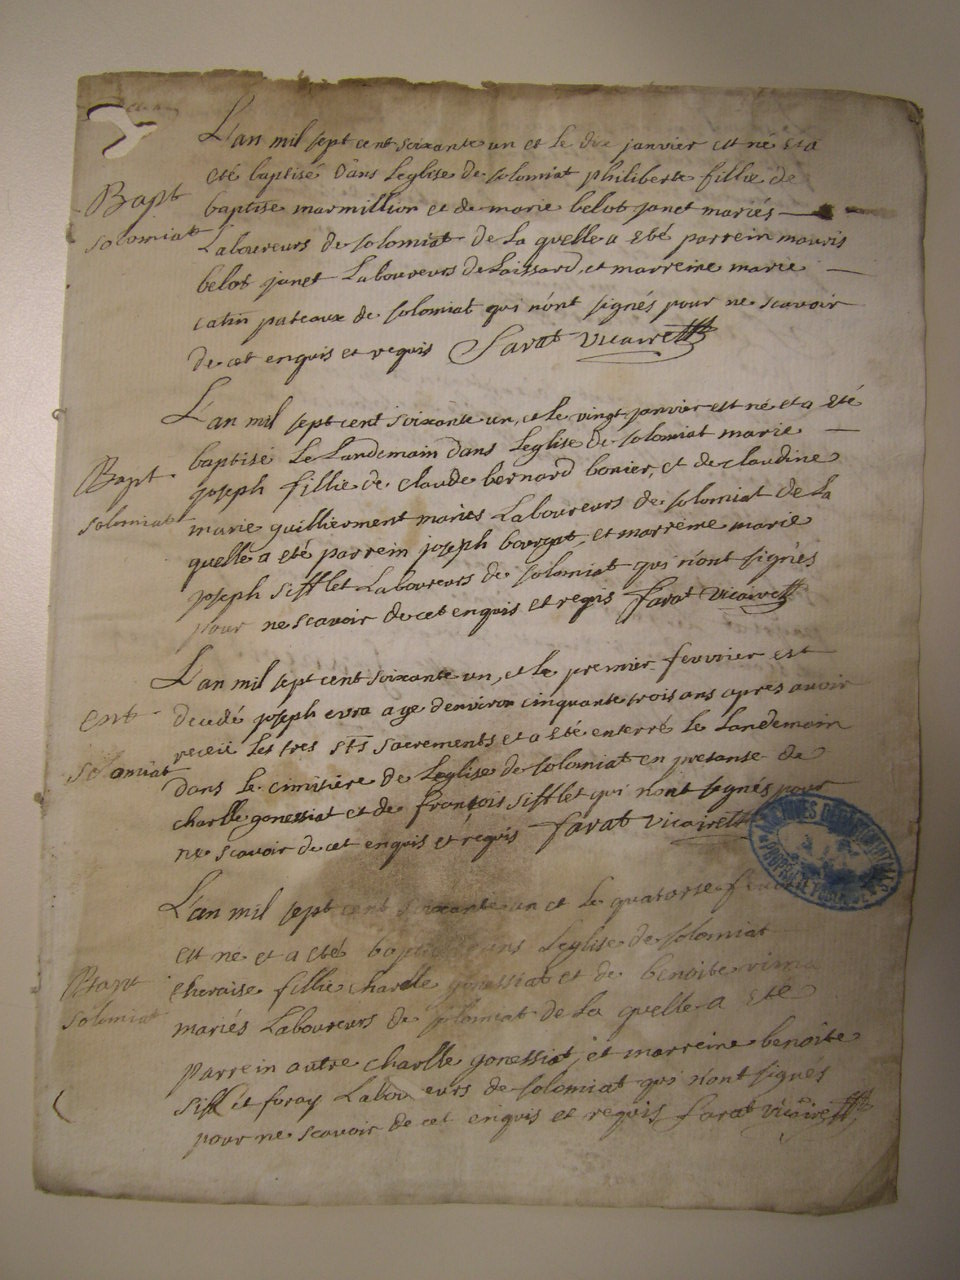 L'an mil sept cent soixante un et le dix janvier est né et a
eté baptisé dans Leglise de solomiat philiberte fillie de
Bapt
baptise marmillion et de marie belot janet mariés
solomiat
Laboureurs de solomiat de La quelle a eté parrein mauris
belot janet Laboureurs de Laissard, et marreine marie
catin pateaux de solomiat qui n'ont signés pour ne scavoir
de cet enquis et requis Farat vicaire
L'an mil sept cent soixante un, et le vingt janvier est né et a eté
baptisé Le Landemain dans Leglise de solomiat marie
Bapt
joseph fillie de claude bernard bonier, et de claudine
solomiat
marie guillierment mariés Laboureurs de solomiat de La
quelle a eté parrein joseph et marreine marie
joseph sifflet Laboureurs de solomiat qui n'ont signés
pour ne scavoir de cet enquis et requis farat vicaire
L'an mil sept cent soixante un, et le premier fevrier est
ent
decedé joseph evra age denviron cinquante trois ans apres avoir
solomiat
receü les tres sts sacrements et a eté enterré le Landemain
dans le cimitiere de Leglise de solomiat en presanse de
charlle gonessiat et de françois sifflet qui n'ont signés pour
ne scavoir de cet enquis et requis farat vicaire
ARCHIVES DEPARTEMENTALES
PROPRIETE PUBLIQUE
L'an mil sept cent soixante un et le quatorse
est né et a eté baptisé dans Leglise de solomiat
Bapt
theraise fillie charlle gonessiat et de benoite
solomiat
mariés Laboureurs de solomiat de La quelle a eté
parrein autre charlle gonessiat, et marreine benoite
sifflet Laboureurs de solomiat qui n'ont signés
pour ne scavoir de cet enquis et requis farat vicaire